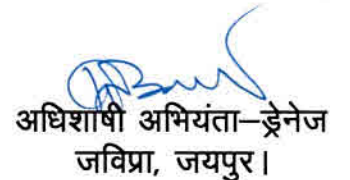 अधिशाषी अभियंता–ड्रेनेज
जविप्रा, जयपुर।